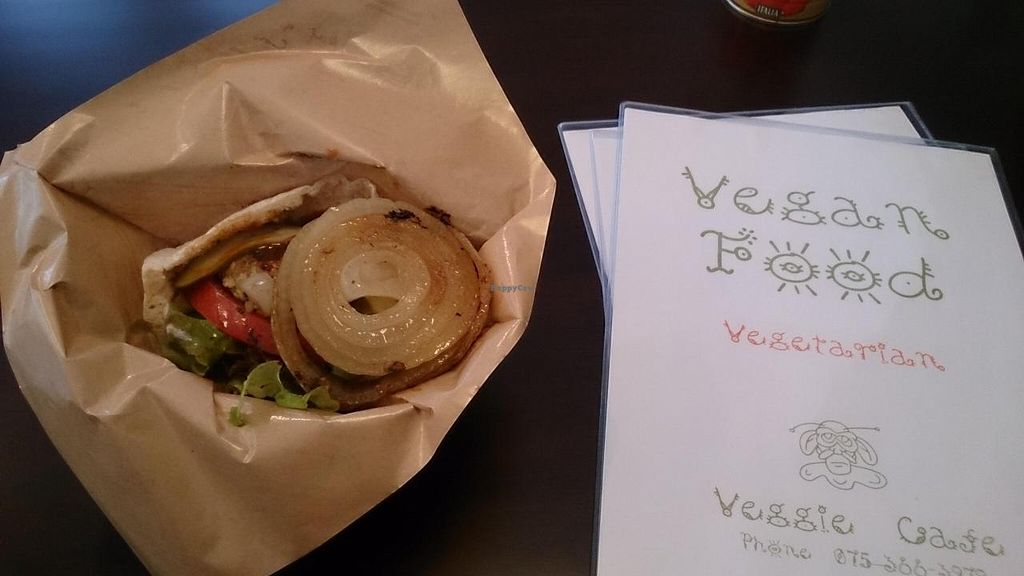 ITALIA
HappyCow
Vegan
Food
Vegetarian
Veggie Cafe
Phone